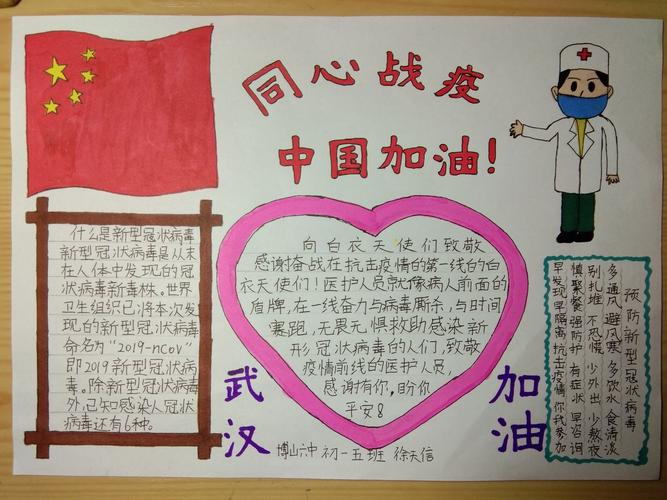 同心战疫
中国加油!
什么是新型冠状病毒
新型冠状病毒是从未
在人体中发现的冠
状病毒新毒株。世界
卫生组织已将本次发
现的新型冠状病毒
命名为“2019-nCoV”
即2019新型冠状病
毒。除新型冠状病毒
外,已知感染人冠状
病毒还有6种。
向白衣天使们致敬
感谢奋战在抗击疫情的第一线的白
衣天使们!医护人员就像病人前面的
盾牌,在一线奋力与病毒厮杀,与时间
赛跑,无畏无惧救助感染新
形冠状病毒的人们,致敬
疫情前线的医护人员,
感谢有你,盼你
平安8
武汉
加油
预防新型冠状病毒
多通风 避风寒 多饮水 食清淡
别扎堆 不恐慌 少外出 少熬夜
慎聚餐 强防护 有症状 早咨询
早发现 早隔离 抗击疫情 你我参加
博山六中 初一五班 徐天信